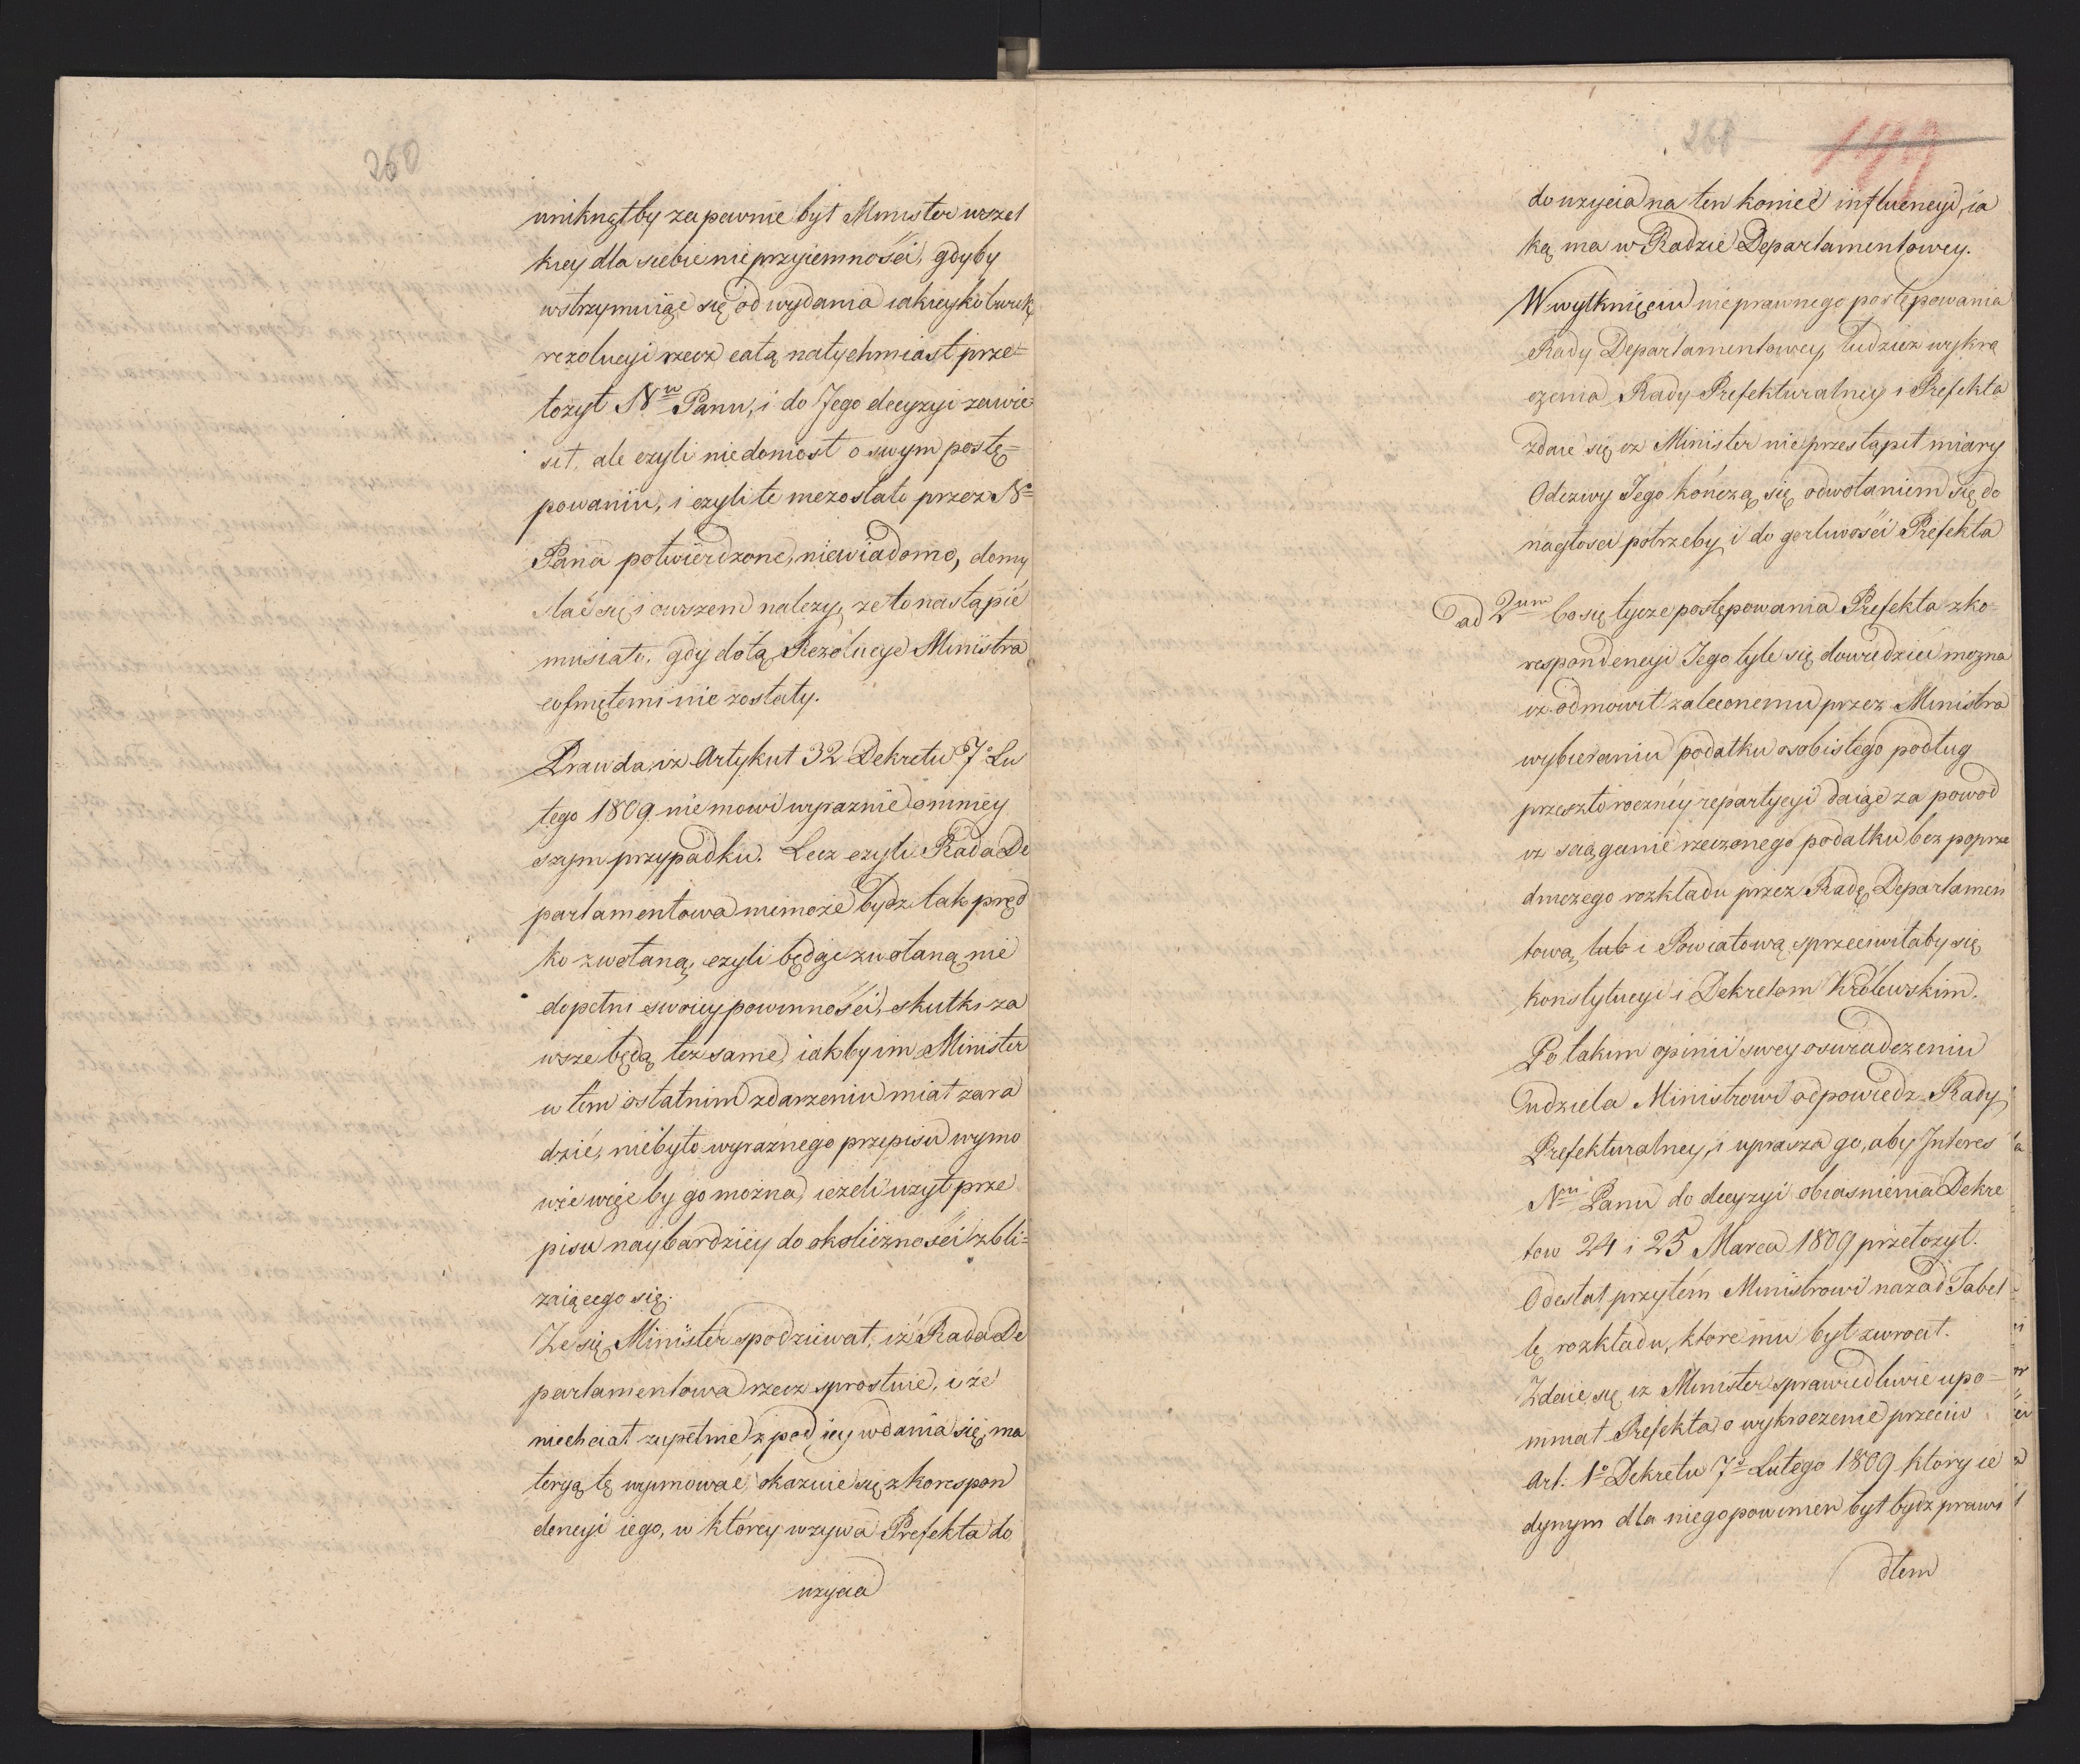 260
uniknąłby zapewnie był Minister wszel
kiey dla siebie nieprzyiemności, gdyby
wstrzymuiąc się od wydania iakieykolwiek
rezolucyi rzecz całą natychmiast prze=
łożył Nu Panu, i do Jego decyzyi zawie=
sił, ale czyli niedoniosł o swym postę=
powaniu, i czyli te niezostało przez N=
Pana potwierdzone, niewiadomo, domy
slać się i owszem należy, że to nastąpić
musiało, gdy dotą Rezolucye Ministra
cofniętemi nie zostały.
Prawda, iż Artykuł 32 Dekretu 7o Lu
tego 1809 nie mowi wyraznie o niniey
szym przypadku. Lecz czyli Rada De
partamentowa niemoże bydz tak pręd
ko zwołaną, czyli będąc zwołaną nie
dopełni swoiey powinności, skutki za
wsze będą też same, iakby im Minister
w tem ostatnim zdarzeniu miał zara
dzić, niebyło wyraźnego przepisu wymo
wić więc by go można, ieżeli użył prze
pisu naybardziey do okoliczności zbli=
żaiącego się.
Że się Minister spodziewał, iż Rada De
partamentowa rzecz sprostuie, i że
niechciał zupełnie z pod iey wdania się, ma
teryą tę wyimować, okazuie się z korespon
dencyi iego, w którey wzywa Prefekta do
użycia
268
do użycia na ten koniec influencyi, ia
ką ma w Radzie Departamentowey.
W wytknięciu nieprawnego postępowania
Rady Departamentowey, tudzież wykro
czenia Rady Prefekturalney i Prefekta
zdaie się iż Minister nieprzestąpił miary
Odezwy Jego kończą się odwołaniem się do
nagłości potrzeby i do gorliwości Prefekta
ad 2um Co się tycze postępowania Prefekta z ko=
respondencyi Jego tyle się dowiedzieć można
iż odmowił zaleconemu przez Ministra
wybieraniu podatku osobistego podług
przeszłoroczney repartycyi daiąc za powod
iż sciąganie rzeczonego podatku bez poprze
dniczego rozkładu przez Radę Departamen
tową, lub i Powiatową sprzeciwiłaby się
konstytucyi i Dekretom Królewskim.
Po takim opinii swey oswiadczeniu
udziela Ministrowi odpowiedz Rady
Prefekturalney, i uprasza go, aby Interes
Nu Panu do decyzyi obiasnienia Dekre
tow 24 i 25 Marca 1809 przełożył.
Odesłał przytém Ministrowi nazad Tabel
lę rozkładu, które mu był zwrocił.
Zdaie się iż Minister sprawiedliwie upo=
minał Prefekta, o wykroczenie przeciw
Art: 1o Dekretu 7o Lutego 1809 który ie
dynym dla niego powinien był bydz prawi
dłem